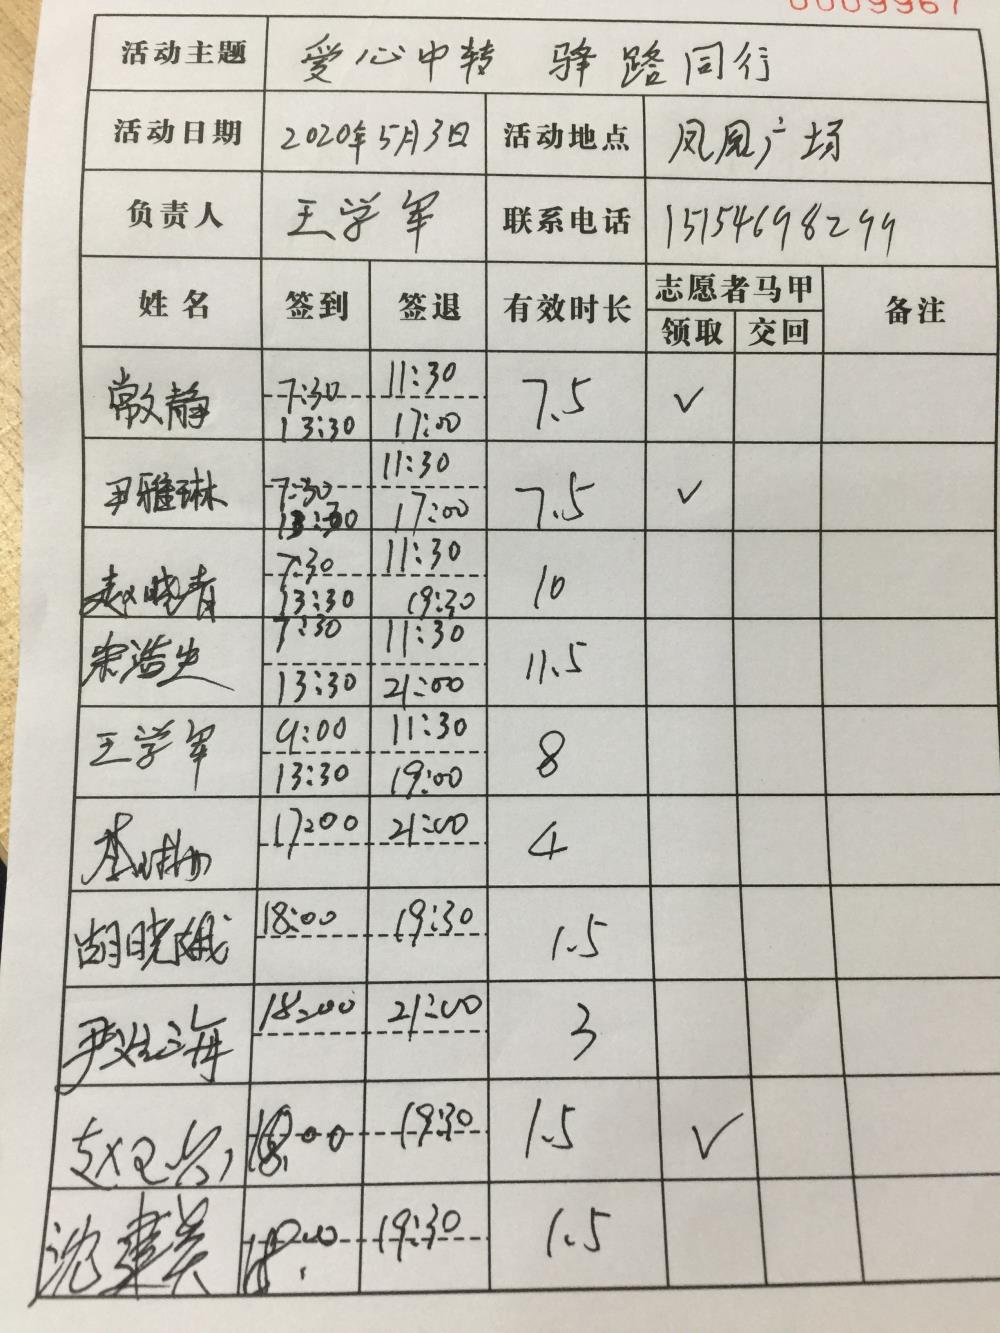 0009967
活动主题 爱心中转 驿路同行
活动日期 2020年5月3日 活动地点 凤凰广场
负责人 王学军 联系电话 15154698299
姓名 签到 签退 有效时长 志愿者马甲 备注
领取 交回
常文静 7:30 11:30 7.5 ✓
13:30 17:00
尹雅琳 7:30 11:30 7.5 ✓
13:30 17:00
赵晓青 7:30 11:30 10
13:30 19:30
宋浩 7:30 11:30 11.5
13:30 21:00
王学军 9:00 11:30 8
13:30 19:00
17:00 21:00 4
胡晓娥 18:00 19:30 1.5
尹 海 18:00 21:00 3
赵 18:00 19:30 1.5 ✓
沈建美 18:00 19:30 1.5